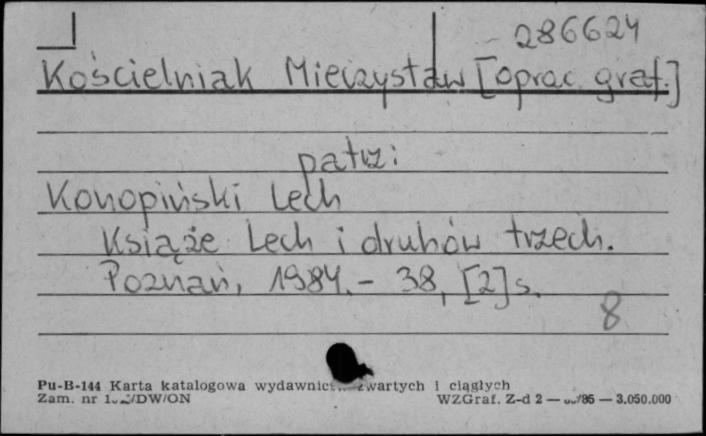 286624
Kościelniak Mieczysław [oprac. graf.]
patrz:
Konopiński Lech
Książe Lech i druhów trzech.
Poznań, 1984. - 38, [2] s.
8
Pu-B-144 Karta katalogowa wydawnict zwartych i ciągłych
Zam. nr /DW/ON WZGraf. Z-d 2 — /85 — 3.050.000